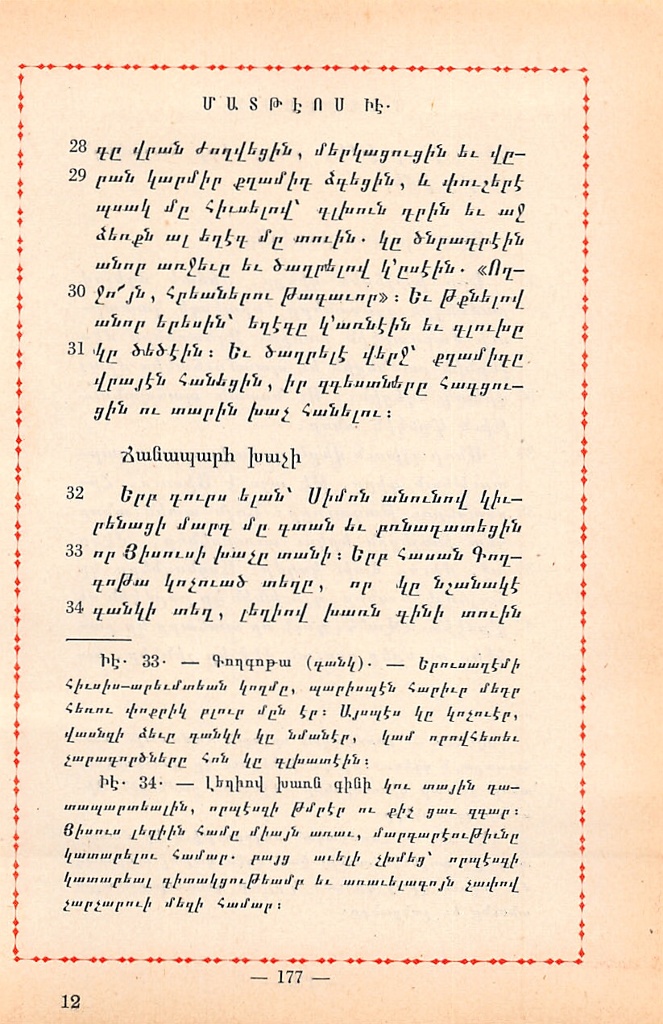 ՄԱՏԹԷՈՍ ԻԷ.
28 դը վրան ժողվեցին, մերկացուցին եւ վը–
29 րան կարմիր քղամիդ ձգեցին, և փուշերէ
պսակ մը հիւսելով՝ գլխուն դրին եւ աջ
ձեռքն ալ եղէգ մը տուին. կը ծնրադրէին
անոր առջեւը եւ ծաղրելով կ՚ըսէին. «Ող–
30 ջո՜յն, Հրեաներու Թագաւոր»: Եւ թքնելով
անոր երեսին՝ եղէգը կ՚առնէին եւ գլուխը
31 կը ծեծէին: Եւ ծաղրելէ վերջ՝ քղամիդը
վրայէն հանեցին, իր զգեստները հագցու–
ցին ու տարին խաչ հանելու:
Ճանապարհ խաչի
32 Երբ դուրս ելան՝ Սիմոն անունով կիւ–
րենացի մարդ մը գտան եւ բռնադատեցին
33 որ Յիսուսի խաչը տանի: Երբ հասան Գող–
գոթա կոչուած տեղը, որ կը նշանակէ
34 գանկի տեղ, լեղիով խառն գինի տուին
ԻԷ. 33. — Գողգոթա (գանկ). — Երուսաղէմի
հիւսիս–արեւմտեան կողմը, պարիսպէն հարիւր մեդր
հեռու փոքրիկ բլուր մըն էր: Այսպէս կը կոչուէր,
վասնզի ձեւը գանկի կը նմանէր, կամ որովհետեւ
չարագործները հոն կը գլխատէին:
ԻԷ. 34. — Լեղիով խառն գինի կու տային դա–
տապարտեալին, որպէսզի թմրէր ու քիչ ցաւ զգար:
Յիսուս լեղիին համը միայն առաւ, մարգարէութիւնը
կատարելու համար. բայց աւելի չխմեց՝ որպէսզի
կատարեալ գիտակցութեամբ եւ առաւելագոյն չափով
չարչարուի մեզի համար:
— 177 —
12